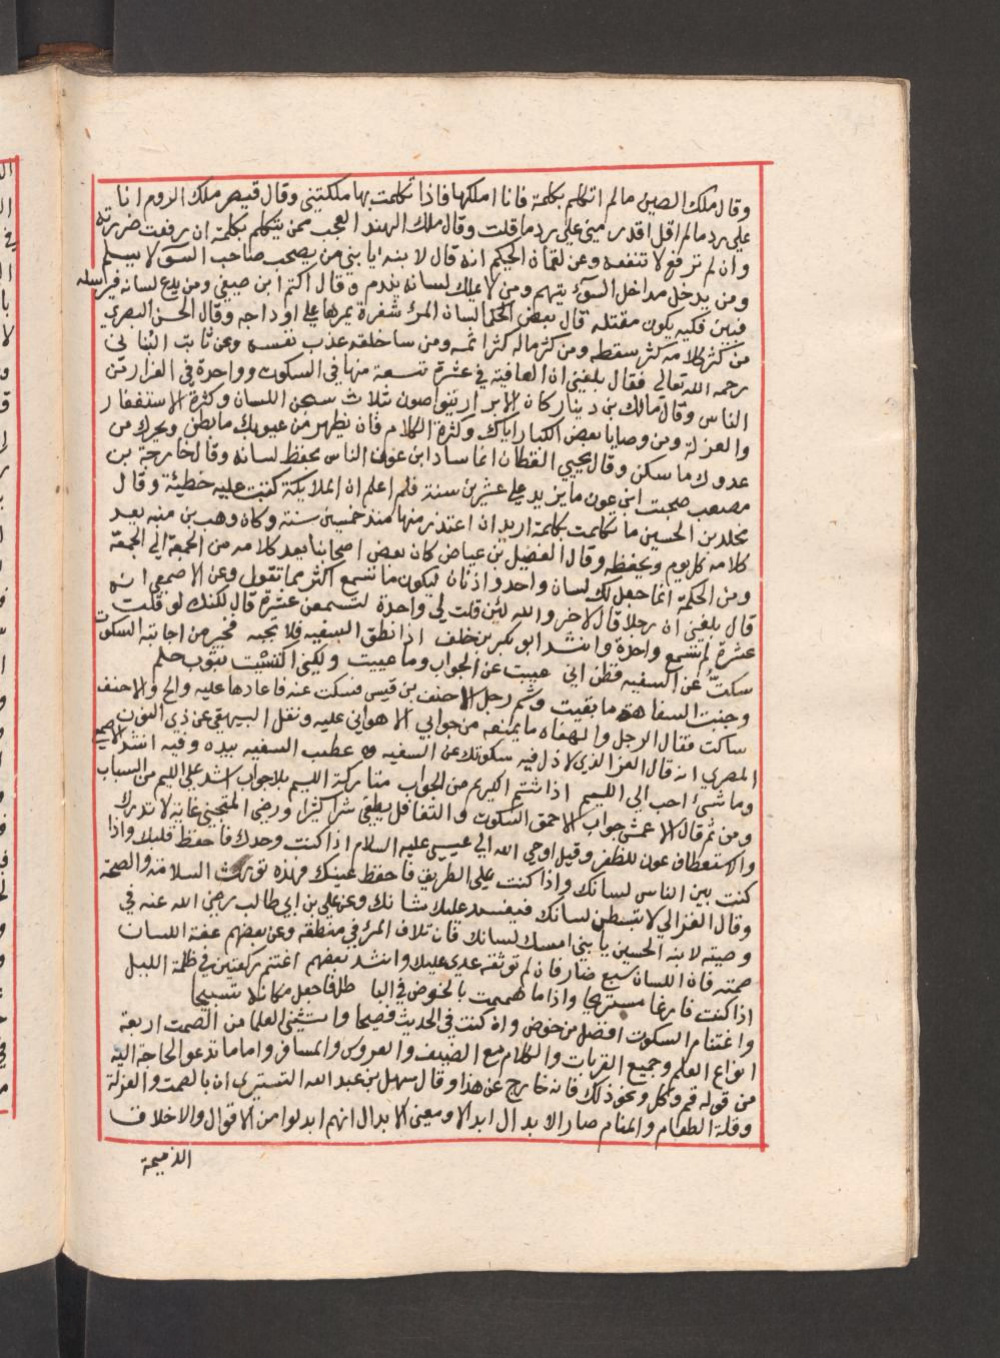 وقال ملك الصين مالم اتكلم بكلمة فانا املكها فاذا تكلمت بها ملكتني وقال قيصر ملك الروم انا
على رد مالم اقل اقدر مني على رد ما قلت وقال ملك الهند العجب ممن يتكلم بكلمة ان رفعت ضررته
وان لم ترفع لا تنفعه وعن لقمان الحكيم انه قال لابنه يا بني من يصحب صاحب السوٓ لا يسلم
ومن يدخل مداخل السوٓء يتهم ومن لا يملك لسانه يندم وقال اكثم ابن صيفي ومن يدع لسانه فيراسله
فبين فكيه يكون مقتله قال بعض الحكما لسان المرء شفرة يمرها على اوداجه وقال الحسن البصري
من كثر كلامه كثر سقطه ومن كثر ماله كثر اثمه ومن ساخلقه عذب نفسه وعن ثابت البناني
رحمه الله تعالى فقال بلغني ان العافية في عشرة تسعة منها في السكوت وواحدة في الفرار من
الناس وقال مالك بن دينار كان الابرار يتواصون بثلاث سجن اللسان وكثرة الاستغفار
والعزلة ومن وصايا بعض الكبار اياك وكثرة الكلام فان يظهر من عيوبك ما بطن ويحرك من
عدوك ما سكن وقال يحيي القطان انما ساد ابن عون الناس بحفظ لسانه وقال خارجة بن
مصعب صحبت ابن عون ما يزيد على عشرين سنة فلم اعلم ان الملايكة كتبت عليه خطيئة وقال
مخلد بن الحسين ما تكلمت بكلمة اريد ان اعتذر منها منذ خمسين سنة وكان وهب بن منبه يعد
كلامه كل يوم ويحفظه وقال الفضيل بن عياض كان بعض اصحابنا يعد كلامه من الجمعة الى الجمعة
ومن الحكمة انما جعل لك لسان واحد واذنان ليكون ما تسمع اكثر مما تقول وعن الاصمعي انه
قال بلغني ان رجلا قال لاخر والله لئن قلت لي واحدة لتسمعن عشرة قال لكنك لو قلت
عشرة لم تسمع واحدة وانشد ابو بكر بن خلف اذا نطق السفيه فلا تجبه فخير من اجابته السكوت
سكتُّ عن السفيه فظن اني عييت عن الجواب وما عييت ولكني اكتسيت بثوب حلم
وجنبت السفاهة ما بقيت وشتم رجل الاحنف بن قيس فسكت عنه فاعادها عليه والح والاحنف
ساكت فقال الرجل والهفاه ما يمنعه من جوابي الا هواني عليه ونقل البيهقي عن ذي النون
المصري انه قال العز الذي لا ذل فيه سكوتك عن السفيه عطب السفيه بيده وفيه انشد الاصمعي
وما شئ احب الى اللئيم اذا شتم الكريم من الجواب متاركة اللئيم بلا جواب اشد على اللئيم من السباب
ومن ثم قال الاعمش جواب الاحمق السكوت والتغافل يطفئ شرا كثيرا ورضي المتجني غاية لا تدرك
والاستعطاف عون للظفر وقيل اوحي الله الى عيسى عليه السلام اذا كنت وحدك فاحفظ قلبك واذا
كنت بين الناس لسانك واذا كنت على الطريق فاحفظ عينك فهذه تورث السلامة والصحة
وقال الغزالي لا تبسطن لسانك فيفسد عليك شانك وعن علي بن ابي طالب رضي الله عنه في
وصيته لابنه الحسين يا بني امسك لسانك فان تلاف المرء في منطقه وعن بعضهم عفة اللسان
صمته فان اللسان سبع ضار فان لم توثقه عدى عليك وانشد بعضهم اغتنم ركعتين في ظلمة الليل
اذا كنت فارغا مستريحا واذا ما هممت بالخوض في البا طل فاجعل مكانه تسبيحا
واغتنام السكوت افضل من خوض وان كنت في الحديث فصيحا واستثنى العلما من الصمت اربعة
انواع العلم وجميع القربات والكلام مع الضيف والعروس والمسافر واما ما تدعو الحاجة اليه
من قوله قم وكل ونحو ذلك فانه خارج عن هذا وقال سهل بن عبد الله التستري ان بالصمت والعزلة
وقلة الطعام والمنام صار الابدال ابدالا ومعنى الابدال انهم ابدلوا من الاقوال والاخلاق
الذميمة